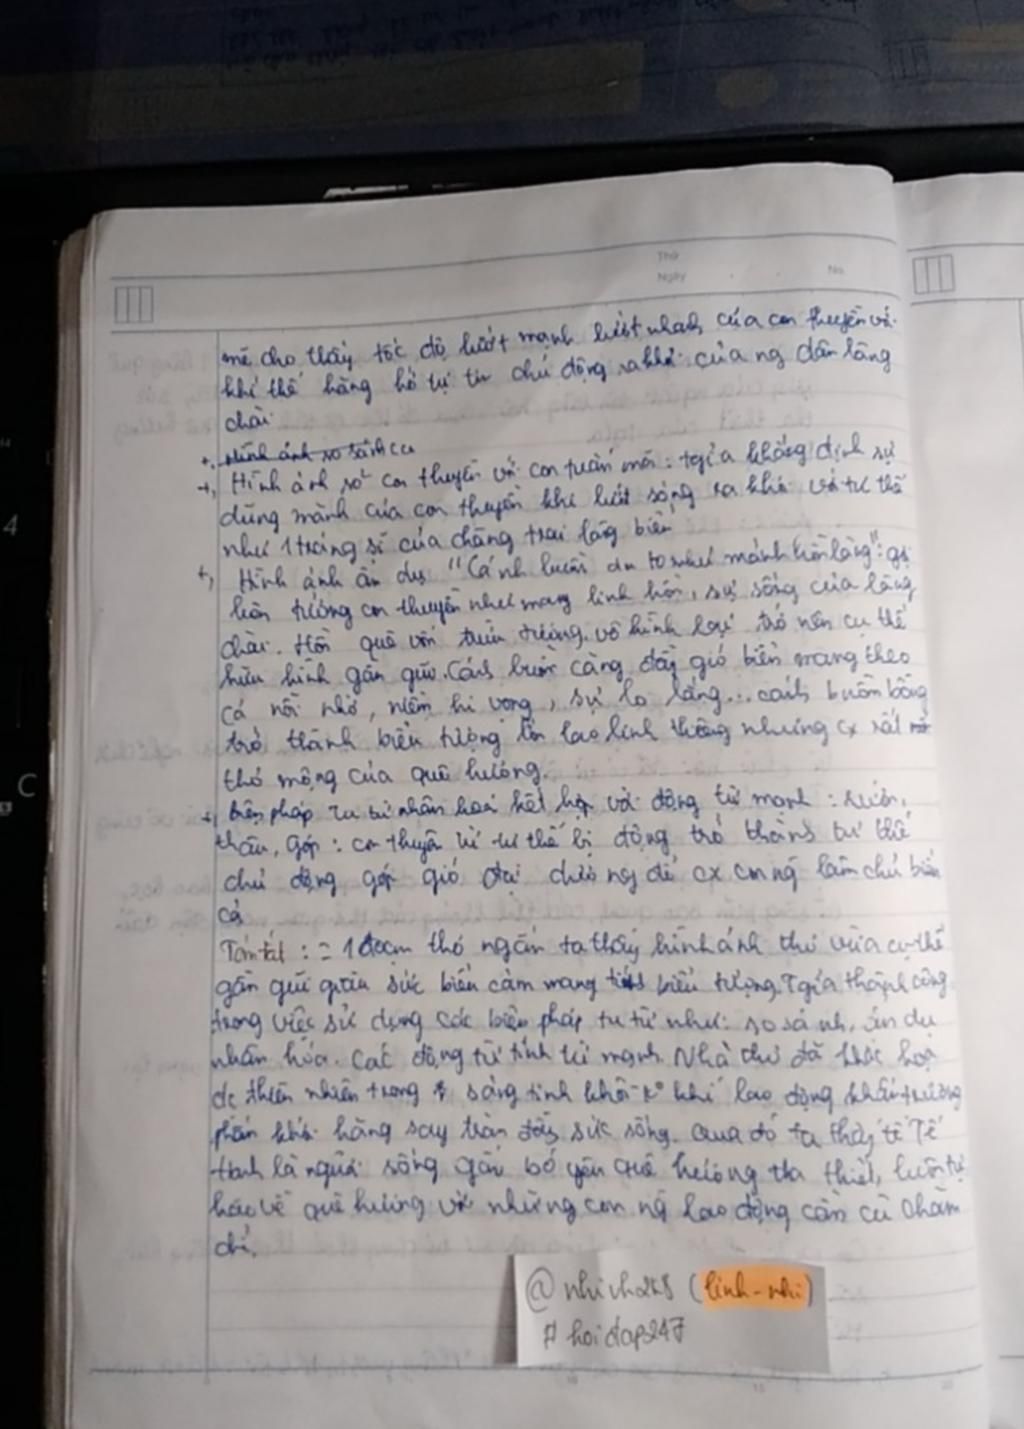 Thứ
Ngày No.
mẽ cho thấy tốc độ lướt mạnh lướt nhanh của con thuyền và
khí thế hăng hở tự tin chủ động ra khơi của ng dân làng
chài
+, Hình ảnh so sánh cu
+, Hình ảnh so² con thuyền với con tuấn mã : tgiả khẳng định sự
dũng mãnh của con thuyền khi lướt sóng ra khơi và tư thế
như 1 tráng sĩ của chàng trai làng biển
+, Hình ảnh ẩn dụ "Cánh buồm to như mảnh hồn làng" : gợi
liên tưởng con thuyền như mang linh hồn, sự sống của làng
chài. Hồn quê vốn trừu tượng vô hình lại trở nên cụ thể
hữu hình gần gũi. Cánh buồm căng đầy gió biển mang theo
cả nỗi nhớ, niềm hi vọng, sự lo lắng... cánh buồm bỗng
trở thành biểu tượng lớn lao linh thiêng nhưng cx rất
thơ mộng của quê hương.
+, biện pháp tu từ nhân hoá kết hợp với động từ mạnh : rướn,
thâu, góp : con thuyền từ tư thế bị động trở thành tư thế
chủ động góp gió đại dương để cx con ng làm chủ biển
cả
Tóm tắt : = 1 đoạn thơ ngắn ta thấy hình ảnh thơ vừa cụ thể
gần gũi giàu sức biểu cảm mang tính biểu tượng. Tgiả thành công
trong việc sử dụng các biện pháp tu từ như : so sánh, ẩn dụ
nhân hóa. Các động từ tính từ mạnh. Nhà thơ đã khắc hoạ
đc thiên nhiên trong sáng tinh khôi - k° khí lao động khẩn trương
phấn khởi hăng say tràn đầy sức sống. Qua đó ta thấy tế Tế
Hanh là người sống gắn bó yêu quê hương tha thiết, luôn tự
hào về quê hương với những con ng lao động cần cù chăm
chỉ.
@ nhivh248 (linh-nhi)
# hoidap247
4
C